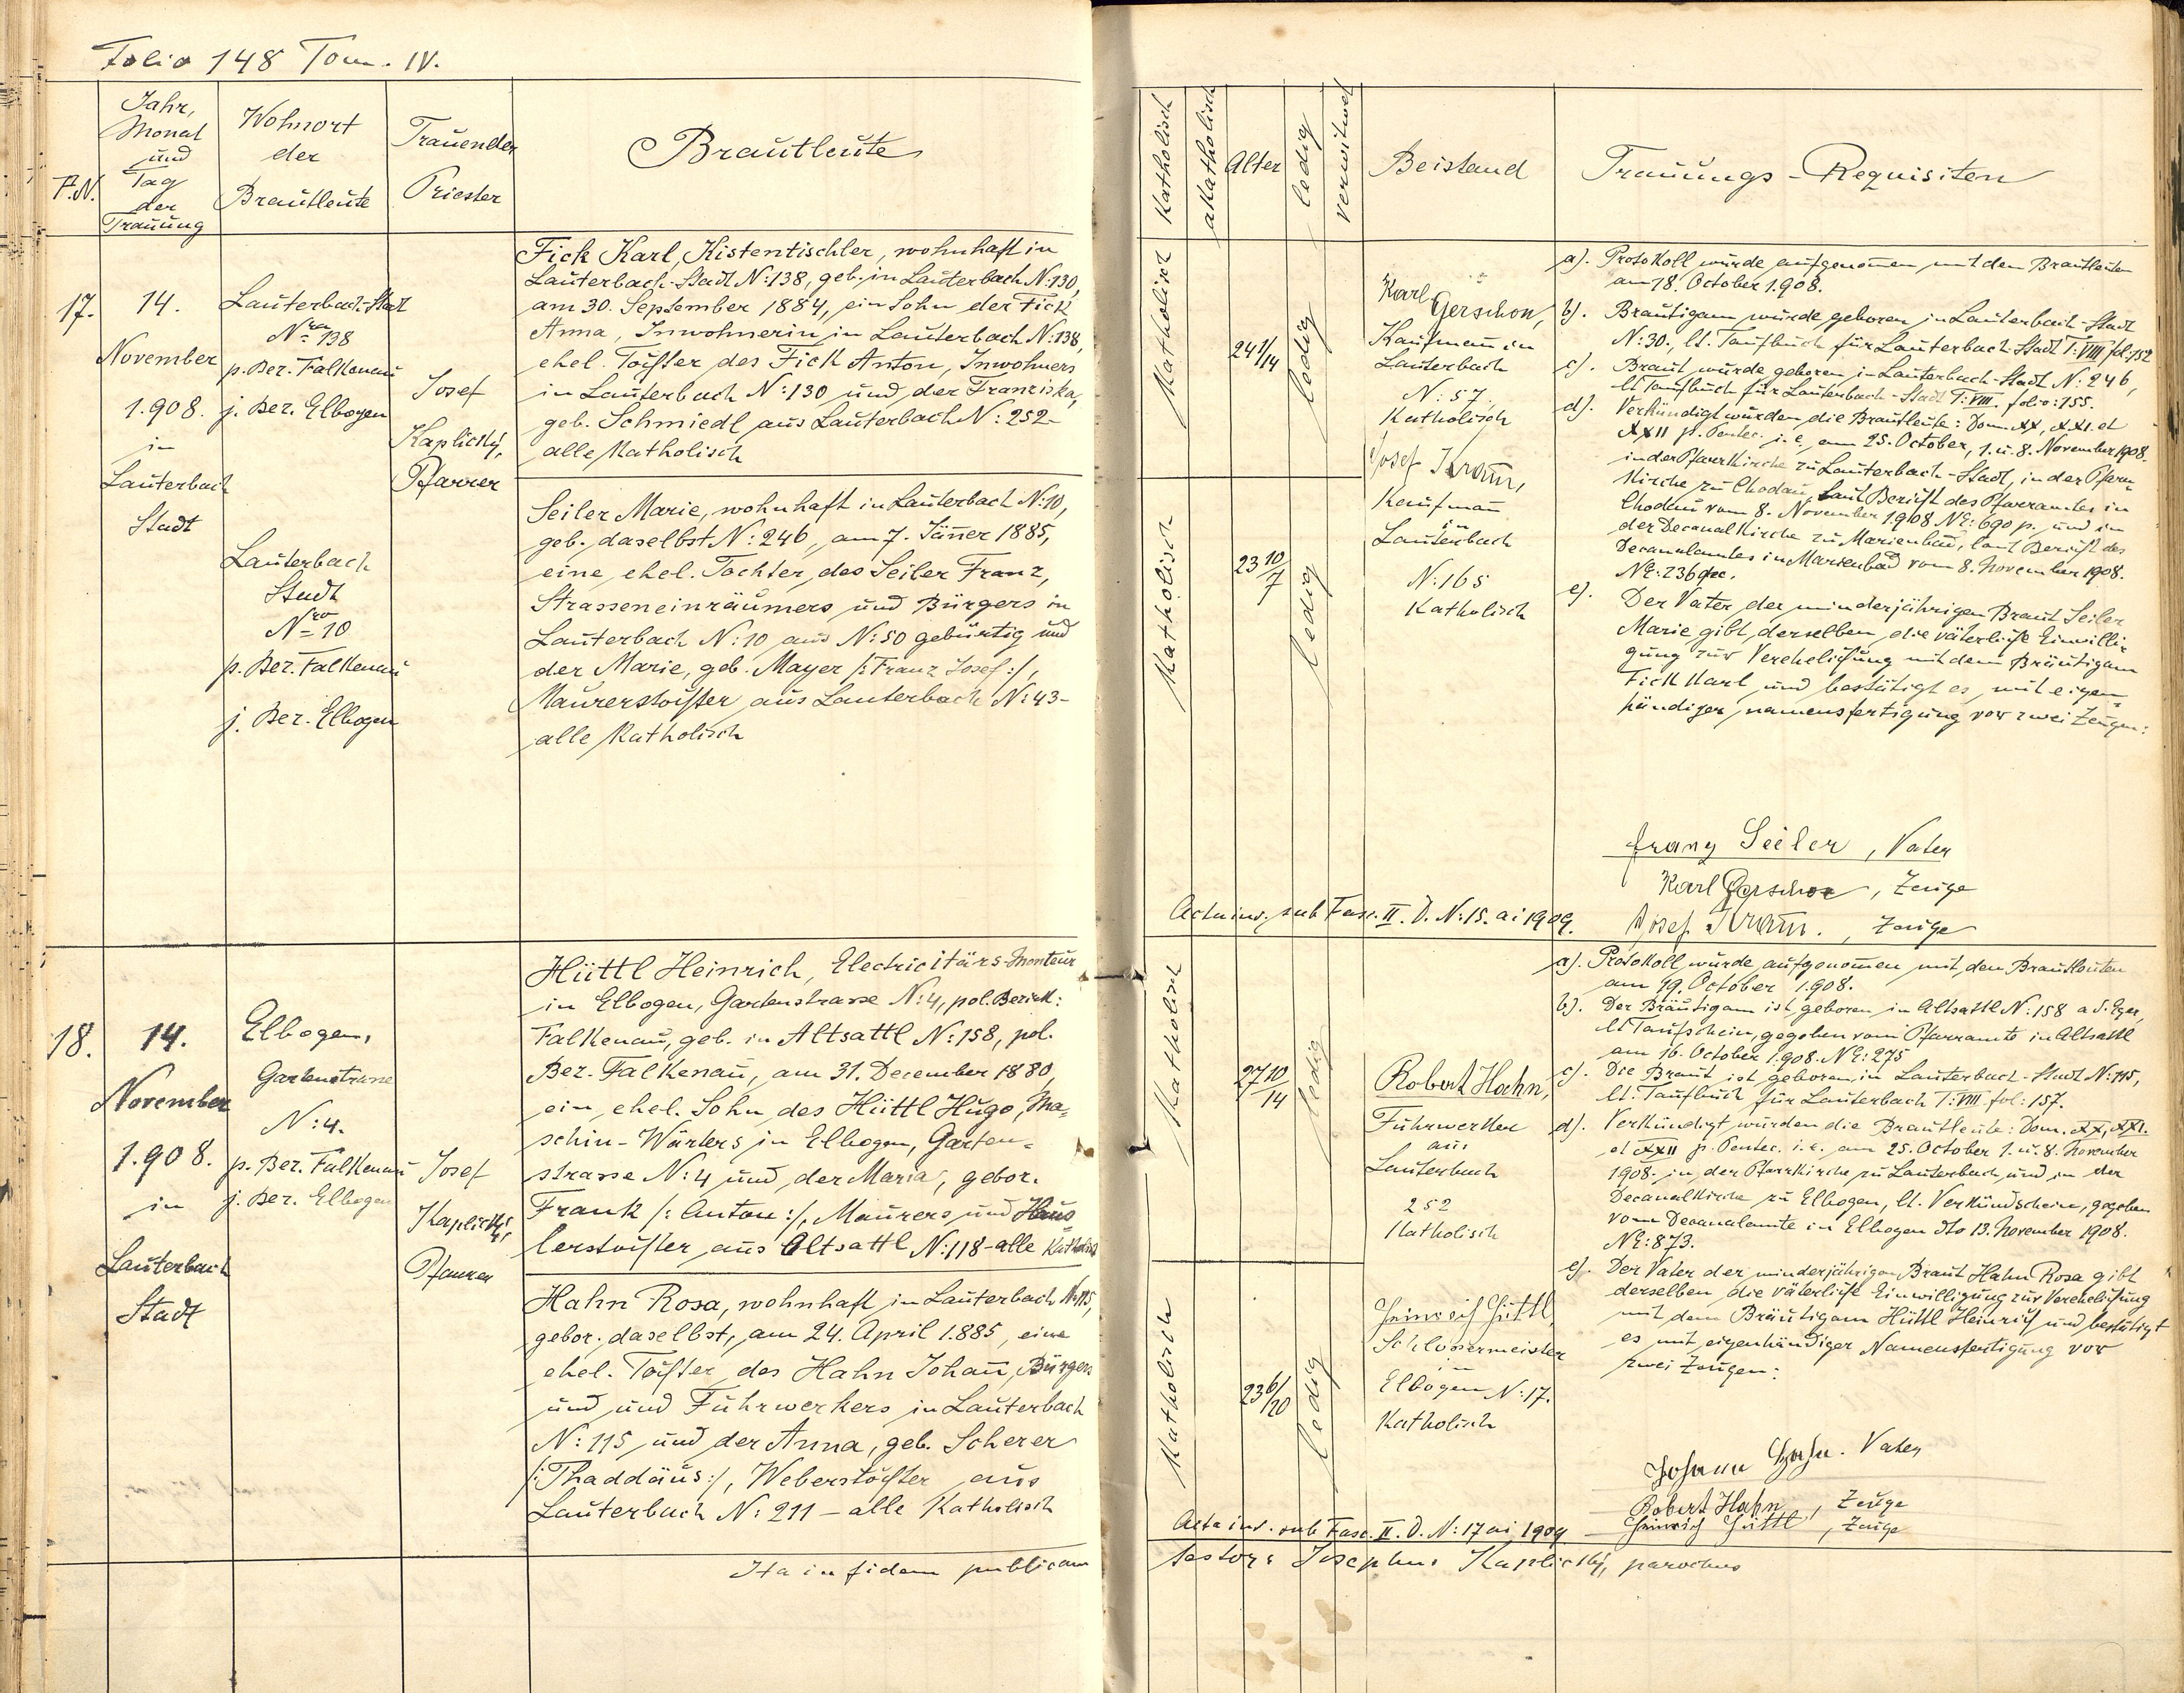 Folio 148 Tom. IV.
F.N.
Jahr,
Monat
und
Tag
der
Trauung
Wohnort
der
Brautleute
Trauender
Priester
Brautleute
17.
14.
November
1.908.
in
Lauterbach
Stadt
Lauterbach-Stadt
Nro 138
p. Bez. Falkenau
j. Bez. Elbogen
Lauterbach
Stadt
Nro 10
p. Bez. Falkenau
j. Bez. Elbogen
Josef
Kaplický,
Pfarrer
Fick Karl, Kistentischler, wohnhaft in
Lauterbach-Stadt N:138, geb. in Lauterbach N:130,
am 30. September 1884, ein Sohn der Fick
Anna, Inwohnerin in Lauterbach N:138,
ehel. Tochter des Fick Anton, Inwohners
in Lauterbach N:130 und der Franziska,
geb. Schmiedl aus Lauterbach N:252-
alle katholisch
Seiler Marie, wohnhaft in Lauterbach N:10,
geb. daselbst N:246, am 7. Jänner 1885,
eine ehel. Tochter des Seiler Franz,
Strasseneinräumers und Bürgers in
Lauterbach N:10 aus N:50 gebürtig und
der Marie, geb. Mayer /:Franz Josef:/,
Maurerstochter aus Lauterbach N:43-
alle katholisch
18.
14.
November
1.908.
in
Lauterbach
Stadt
Elbogen,
Gartenstrasse
N:4.
p. Bez. Falkenau
j. Bez. Elbogen
Josef
Kaplický,
Pfarrer
Hüttl Heinrich, Electricitärs-Monteur
in Elbogen, Gartenstrasse N:4, pol. Bezirk:
Falkenau, geb. in Altsattl N:158, pol.
Bez. Falkenau, am 31. December 1880,
ein ehel. Sohn des Hüttl Hugo, Ma=
schin-Wärters in Elbogen, Garten=
strasse N:4 und der Maria, gebor.
Frank /:Anton:/, Maurers und Häus
lerstochter aus Altsattl N:118-alle katholisch
Hahn Rosa, wohnhaft in Lauterbach N:115,
gebor. daselbst, am 24. April 1.885, eine
ehel. Tochter des Hahn Johann, Bürgers
und und Fuhrwerkers in Lauterbach
N:115 und der Anna, geb. Scherer
/:Thaddäus:/, Weberstochter aus
Lauterbach N:211 - alle katholisch
Ita in fidem publicam
Katholisch
akatholisch
Alter
ledig
verwitwet
Beistand
Trauungs-Requisiten
Katholisch
24 1/14
ledig
Karl Gerschon,
Kaufmann in
Lauterbach
N:57.
Katholisch
Josef Kram,
Kaufmann
in
Lauterbach
N:165
Katholisch
Katholisch
23 10/7
ledig
a). Protokoll wurde aufgenommen mit den Brautleuten
am 18. October 1.908.
b). Bräutigam wurde geboren in Lauterbach-Stadt
N:30., lt. Taufbuch für Lauterbach-Stadt T:VIII fol:152
c). Braut wurde geboren in Lauterbach-Stadt N:246,
lt Taufbuch für Lauterbach-Stadt T:VIII. folio:155.
d). Verkündigt wurden die Brautleute: Dom. XX, XXI. et
XXII p. Pentec. i.e. am 25. October, 1. u. 8. November 1908.
in der Pfarrkirche zu Lauterbach-Stadt, in der Pfarr
kirche zu Chodau, laut Bericht des Pfarramtes in
Chodau vom 8. November 1.908 NE:690 p. und in
der Decanalkirche zu Marienbad, laut Bericht des
Decanalamtes in Marienbad vom 8. November 1908.
NE:236
e). Der Vater der minderjährigen Braut Seiler
Marie gibt derselben die väterliche Einwilli=
gung zur Verehelichung mit dem Bräutigam
Fick Karl und bestätigt es mit eigen=
händiger Namensfertigung vor zwei Zeugen:
Franz Seiler, Vater
Karl Gerschon, Zeuge
Josef Kram., Zeuge
Acta inv. sub Fasc. II. D. N:15. ai 1909.
Katholisch
27 10/14
ledig
Robert Hahn,
Fuhrwerker
aus
Lauterbach
252
Katholisch
Katholisch
23 6/20
ledig
Heinrich Hüttl
Schlossermeister
in
Elbogen N:17.
Katholisch
a). Protokoll wurde aufgenommen mit den Brautleuten
am 19. October 1.908.
b). Der Bräutigam ist geboren in Altsattl N:158 a.d. Eger,
lt Taufschein, gegeben vom Pfarramte in Altsattl
am 16. October 1.908. NE:275
c). Die Braut ist geboren in Lauterbach-Stadt N:115,
lt. Taufbuch für Lauterbach T:VIII. fol:157.
d). Verkündigt wurden die Brautleute: Dom. XX, XXI.
et XXII p. Pentec. i.e. am 25. October 1. u. 8. November
1908. in der Pfarrkirche zu Lauterbach und in der
Decanalkirche zu Elbogen, lt. Verkündschein, gegeben
vom Decanalamte in Elbogen dto 13. November 1908.
NE:873.
e). Der Vater der minderjährigen Braut Hahn Rosa gibt
derselben die väterliche Einwilligung zur Verehelichung
mit dem Bräutigam Hüttl Heinrich und bestätigt
es mit eigenhändiger Namensfertigung vor
zwei Zeugen:
Johann Hahn. Vater
Robert Hahn, Zeuge
Heinrich Hüttl, Zeuge
Acta inv. sub Fasc. II. D. N:17 ai 1909
testor: Josephus Kaplický, parochus